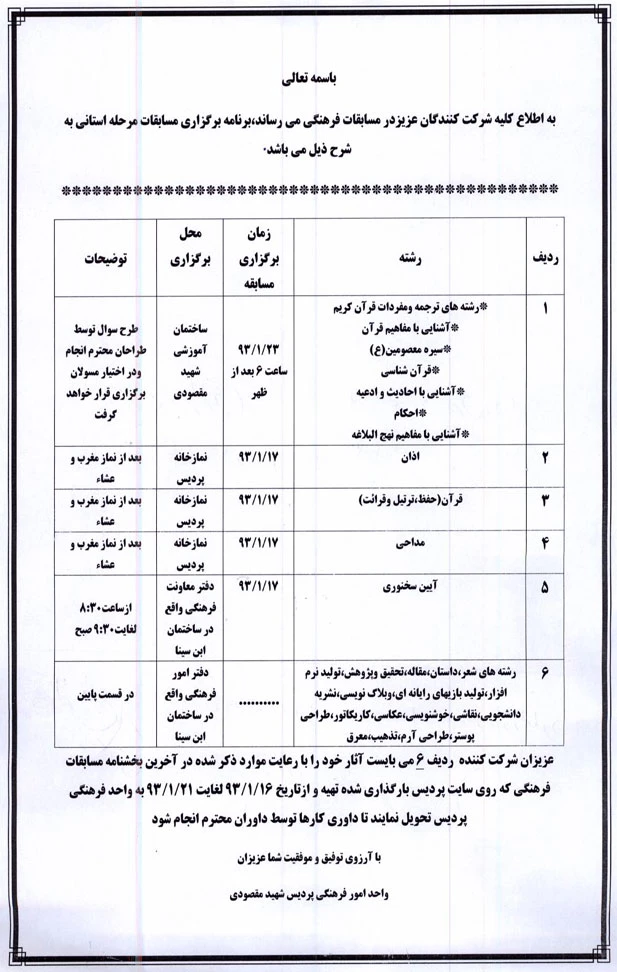 باسمه تعالی
به اطلاع کلیه شرکت کنندگان عزیزدر مسابقات فرهنگی می رساند،برنامه برگزاری مسابقات مرحله استانی به
شرح ذیل می باشد.
************************************************
ردیف
رشته
زمان
برگزاری
مسابقه
محل
برگزاری
توضیحات
۱
*رشته های ترجمه ومفردات قرآن کریم
*آشنایی با مفاهیم قرآن
*سیره معصومین(ع)
*قرآن شناسی
*آشنایی با احادیث و ادعیه
*احکام
*آشنایی با مفاهیم نهج البلاغه
۹۳/۱/۲۳
ساعت ۶ بعد از
ظهر
ساختمان
آموزشی
شهید
مقصودی
طرح سوال توسط
طراحان محترم انجام
ودر اختیار مسولان
برگزاری قرار خواهد
گرفت
۲
اذان
۹۳/۱/۱۷
نمازخانه
پردیس
بعد از نماز مغرب و
عشاء
۳
قرآن(حفظ،ترتیل وقرائت)
۹۳/۱/۱۷
نمازخانه
پردیس
بعد از نماز مغرب و
عشاء
۴
مداحی
۹۳/۱/۱۷
نمازخانه
پردیس
بعد از نماز مغرب و
عشاء
۵
آیین سخنوری
۹۳/۱/۱۷
دفتر معاونت
فرهنگی واقع
در ساختمان
ابن سینا
ازساعت۸:۳۰
لغایت۹:۳۰صبح
۶
رشته های شعر،داستان،مقاله،تحقیق وپژوهش،تولید نرم
افزار،تولید بازیهای رایانه ای،وبلاگ نویسی،نشریه
دانشجویی،نقاشی،خوشنویسی،عکاسی،کاریکاتور،طراحی
پوستر،طراحی آرم،تذهیب،معرق
..........
دفتر امور
فرهنگی واقع
در ساختمان
ابن سینا
در قسمت پایین
عزیزان شرکت کننده ردیف ۶ می بایست آثار خود را با رعایت موارد ذکر شده در آخرین بخشنامه مسابقات
فرهنگی که روی سایت پردیس بارگذاری شده تهیه و ازتاریخ ۹۳/۱/۱۶ لغایت ۹۳/۱/۲۱ به واحد فرهنگی
پردیس تحویل نمایند تا داوری کارها توسط داوران محترم انجام شود
با آرزوی توفیق و موفقیت شما عزیزان
واحد امور فرهنگی پردیس شهید مقصودی